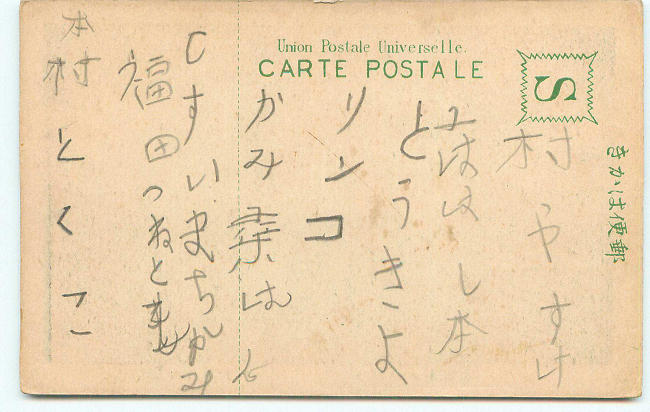 Union Postale Universelle.
CARTE POSTALE
S
きかは便郵
村 やすけ
はは し本
とうきよ
リンコ
かみ は
しすいまちかみ
福田つねと
本村とくこ